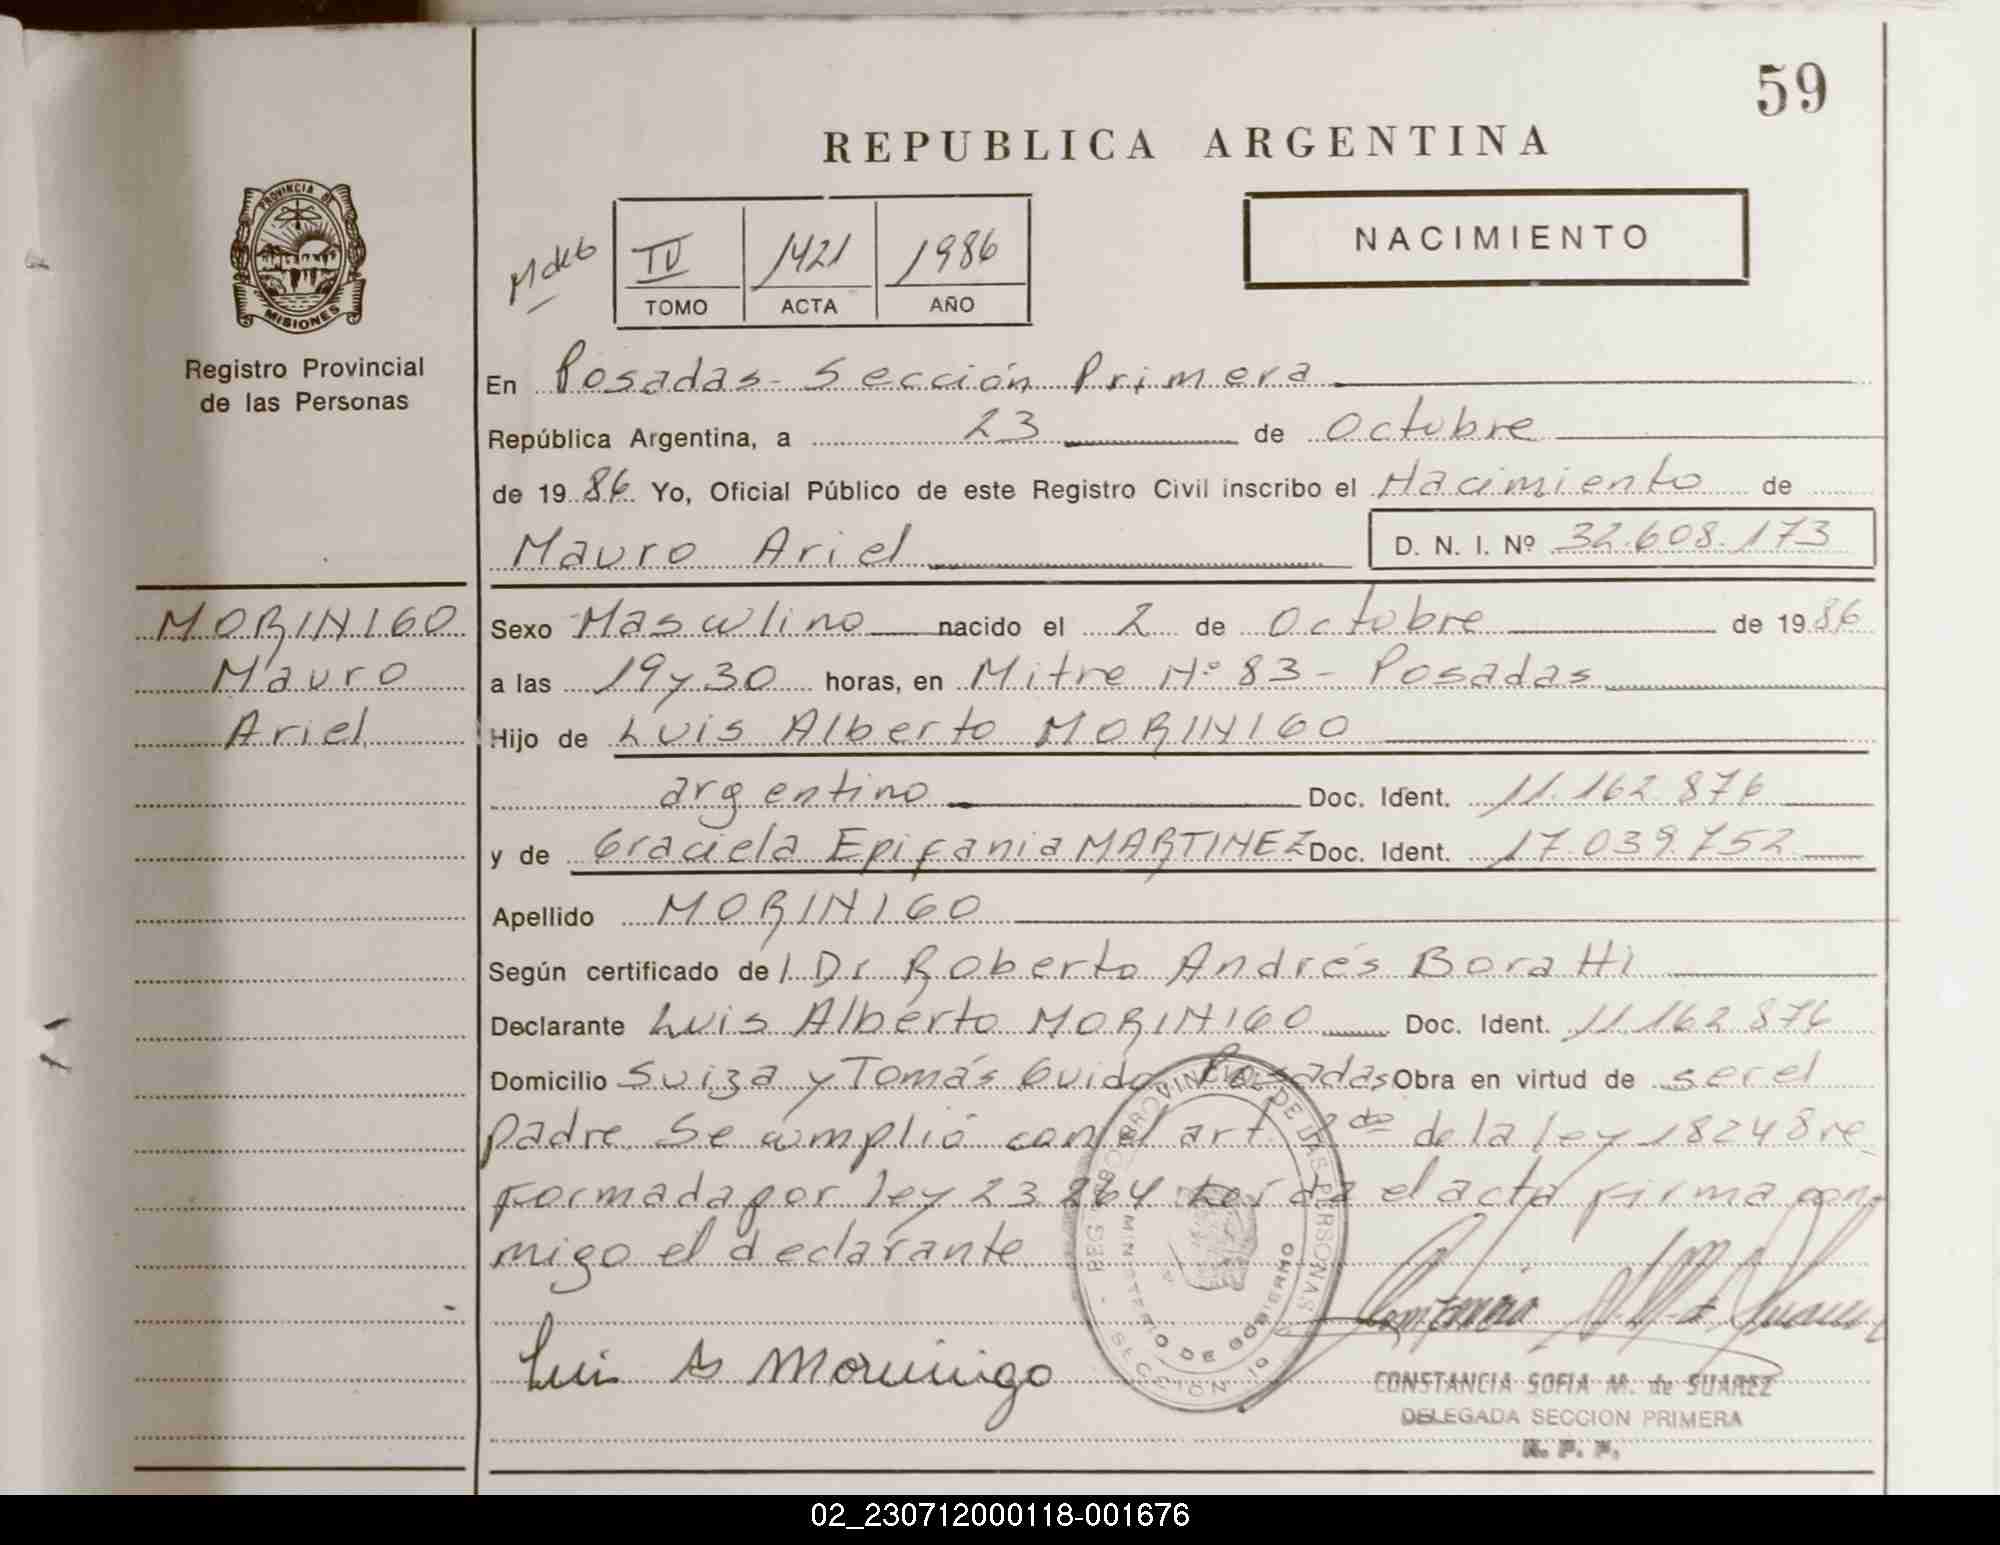 59
REPUBLICA ARGENTINA
PROVINCIA DE
MISIONES
Registro Provincial
de las Personas
NACIMIENTO
IV 1421 1986
TOMO ACTA AÑO
En Posadas - Sección Primera
República Argentina, a 23 de Octubre
de 1986 Yo, Oficial Público de este Registro Civil inscribo el Nacimiento de
Mauro Ariel D. N. I. Nº 32.608.173
MORINIGO
Mauro
Ariel
Sexo Masculino nacido el 2 de Octubre de 1986
a las 19 y 30 horas, en Mitre Nº 83 - Posadas
Hijo de Luis Alberto MORINIGO
argentino Doc. Ident. 11.162.876
y de Graciela Epifania MARTINEZ Doc. Ident. 17.039.752
Apellido MORINIGO
Según certificado del Dr Roberto Andrés Boratti
Declarante Luis Alberto MORINIGO Doc. Ident. 11.162.876
Domicilio Suiza y Tomás Guido Posadas Obra en virtud de ser el
padre. Se cumplió con el art. 2do de la ley 18248 re
formada por ley 23.264 Leída el acta firma con
migo el declarante
REG PROVINCIAL DE LAS PERSONAS
MINISTERIO DE GOBIERNO
SECCION
Luis A Morinigo
CONSTANCIA SOFIA M. de SUAREZ
DELEGADA SECCION PRIMERA
R. P. P.
02_230712000118-001676